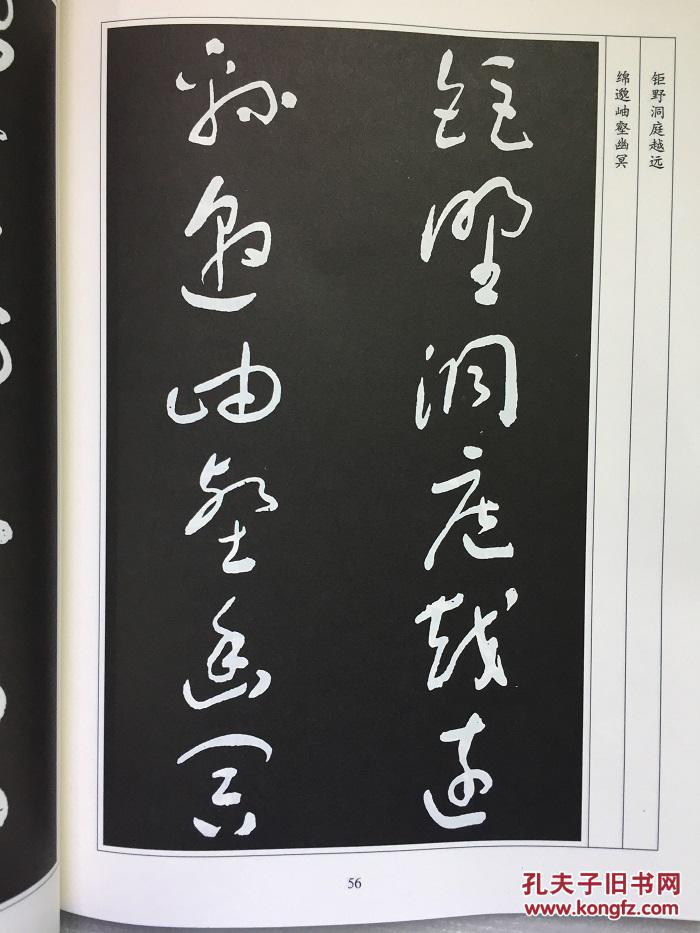 钜野洞庭越远
绵邈岫壑幽冥
钜野洞庭越远
绵邈岫壑幽冥
56
孔夫子旧书网
www.kongfz.com